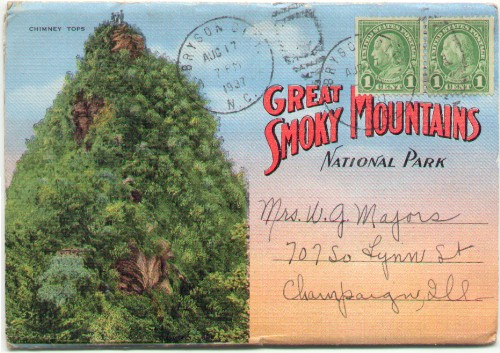 CHIMNEY TOPS
BRYSON CITY
AUG 17
7 PM
1937
N.C.
BRYSON
AUG
1 CENT 1
1 CENT 1
GREAT
SMOKY MOUNTAINS
NATIONAL PARK
Mrs. W. G. Majors
707 So Lynn St
Champaign, Ill